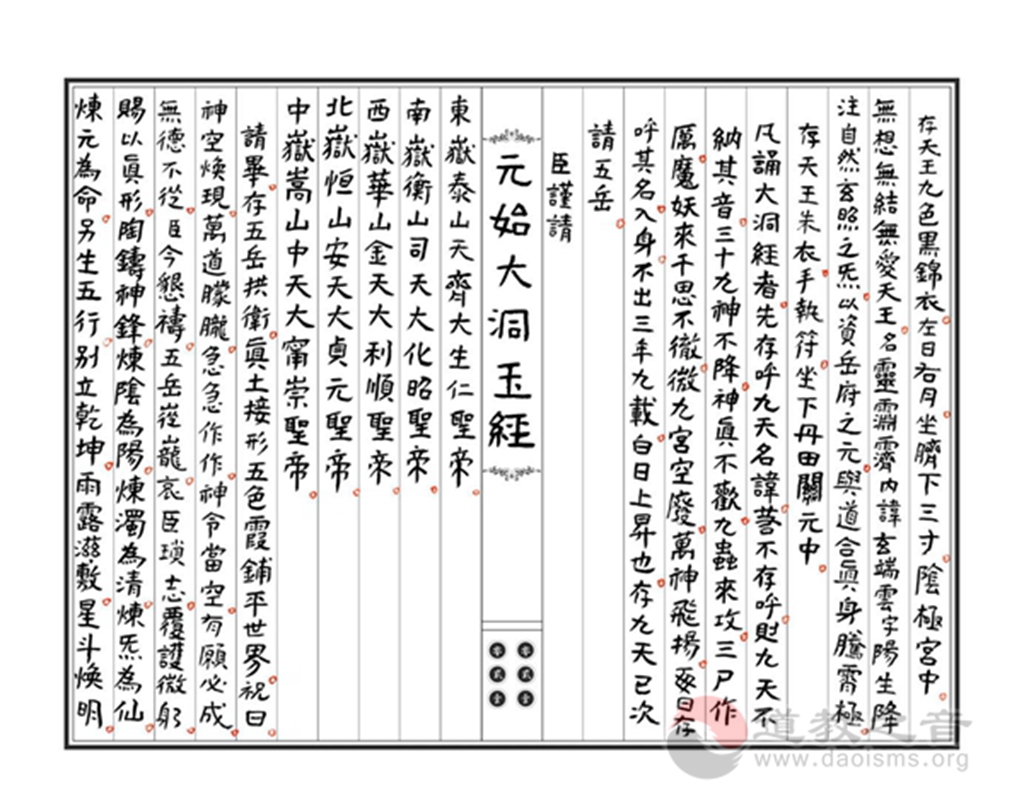 存天王九色黑錦衣左日右月坐臍下三寸陰極宮中
無想無結無愛天王名靈淵霽內諱玄端雲字陽生降
注自然玄照之炁以資岳府之元與道合眞身騰霄極
存天王朱衣手執符坐下丹田關元中
凡誦大洞經者先存呼九天名諱苟不存呼則九天不
納其音三十九神不降神眞不歡九蟲來攻三尸作
厲魔妖來干思不徹微九宮空廢萬神飛揚每日存
呼其名入身不出三年九載白日上昇也存九天已次
請五岳
臣謹請
元始大洞玉經
東嶽泰山天齊大生仁聖帝
南嶽衡山司天大化昭聖帝
西嶽華山金天大利順聖帝
北嶽恒山安天大貞元聖帝
中嶽嵩山中天大甯崇聖帝
請畢存五岳拱衛眞土接形五色霞鋪平世界祝曰
神空煥現萬道朦朧急急作作神令當空有願必成
無德不從臣今懇禱五岳崆巃哀臣瑣志覆護微躬
賜以眞形陶鑄神鋒煉陰為陽煉濁為清煉炁為仙
煉元為命另生五行別立乾坤雨露滋敷星斗煥明
道教之音
www.daoisms.org